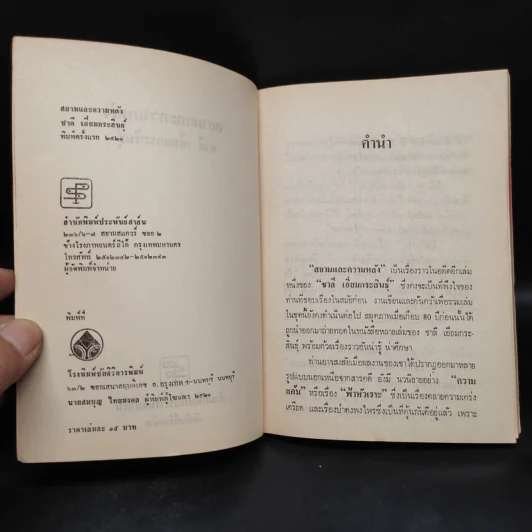 สยามและความหลัง
ชาลี เอี่ยมกระสินธุ์
พิมพ์ครั้งแรก ๒๕๒๑
สำนักพิมพ์ประพันธ์สาส์น
๒๓๖/๖-๗ สยามสแควร์ ซอย ๒
ข้างโรงภาพยนตร์ลิโด้ กรุงเทพมหานคร
โทรศัพท์
ผู้จัดพิมพ์จำหน่าย
พิมพ์ที่
ซอยเสนาสฤษดิ์เดช ถ. กรุงเทพ ฯ-นนทบุรี นนทบุรี
นายสมบุญ ผู้พิมพ์ผู้โฆษณา ๒๕๒๑
ราคาเล่มละ ๑๕ บาท
คำนำ
"สยามและความหลัง" เป็นเรื่องราวในอดีตอีกเล่ม
หนึ่งของ "ชาลี เอี่ยมกระสินธุ์" ซึ่งคงจะเป็นที่พึงใจของ
ท่านที่ชอบเรื่องในสมัยก่อน งานเขียนและค้นคว้าเพื่อรวมเล่ม
ในชุดนี้ยังคงดำเนินต่อไป สมุดภาพเมื่อเกือบ 80 ปีก่อนนั้นได้
ถูกนำออกมาถ่ายทอดในหนังสือหลายเล่มของ ชาลี เอี่ยมกระ-
สินธุ์ พร้อมด้วยเรื่องราวอันน่ารู้ น่าศึกษา
ท่านอาจสงสัยเมื่อผลงานของเขาได้ปรากฏออกมาหลาย
รูปแบบนอกเหนือจากสารคดี ยังมี นวนิยายอย่าง "ความ
แค้น" หรือเรื่อง "ฟ้าหัวเราะ" ซึ่งเป็นเรื่องคลายความเคร่ง
เครียด และเรื่องป่าดงพงไพรซึ่งเป็นที่คุ้นกันดีอยู่แล้ว เพราะ